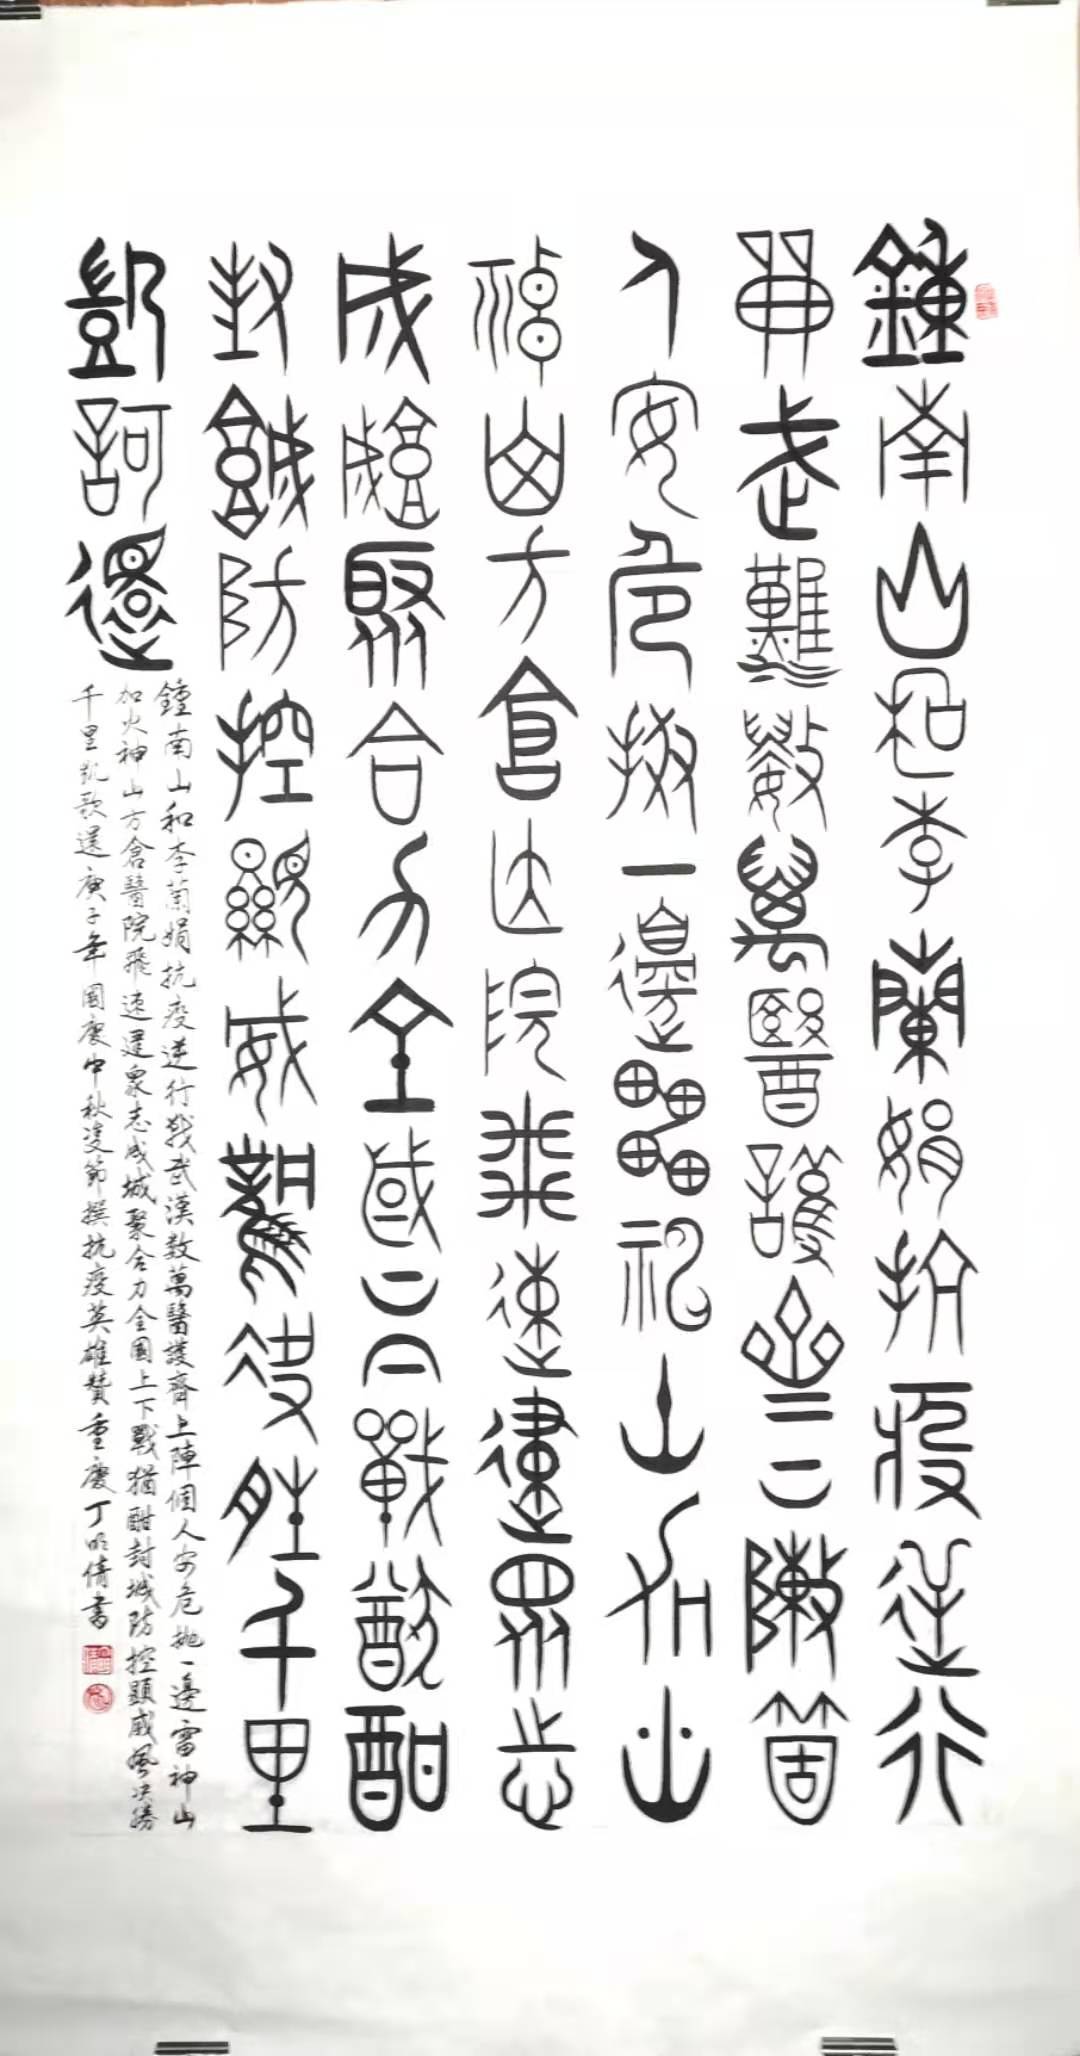 鍾南山和李蘭娟抗疫逆行
戰武漢數萬醫護齊上陣個
人安危拋一邊雷神山加火
神山方倉醫院飛速建眾志
成城聚合力全國上下戰猶酣
封城防控顯威風決勝千里
凱歌還
鍾南山和李蘭娟抗疫逆行戰武漢数萬醫護齊上陣個人安危拋一邊雷神山
加火神山方倉醫院飛速建衆志成城聚合力全國上下戰猶酣封城防控顯威風决勝
千里凱歌還庚子年國慶中秋雙節撰抗疫英雄贊重慶丁明倩書